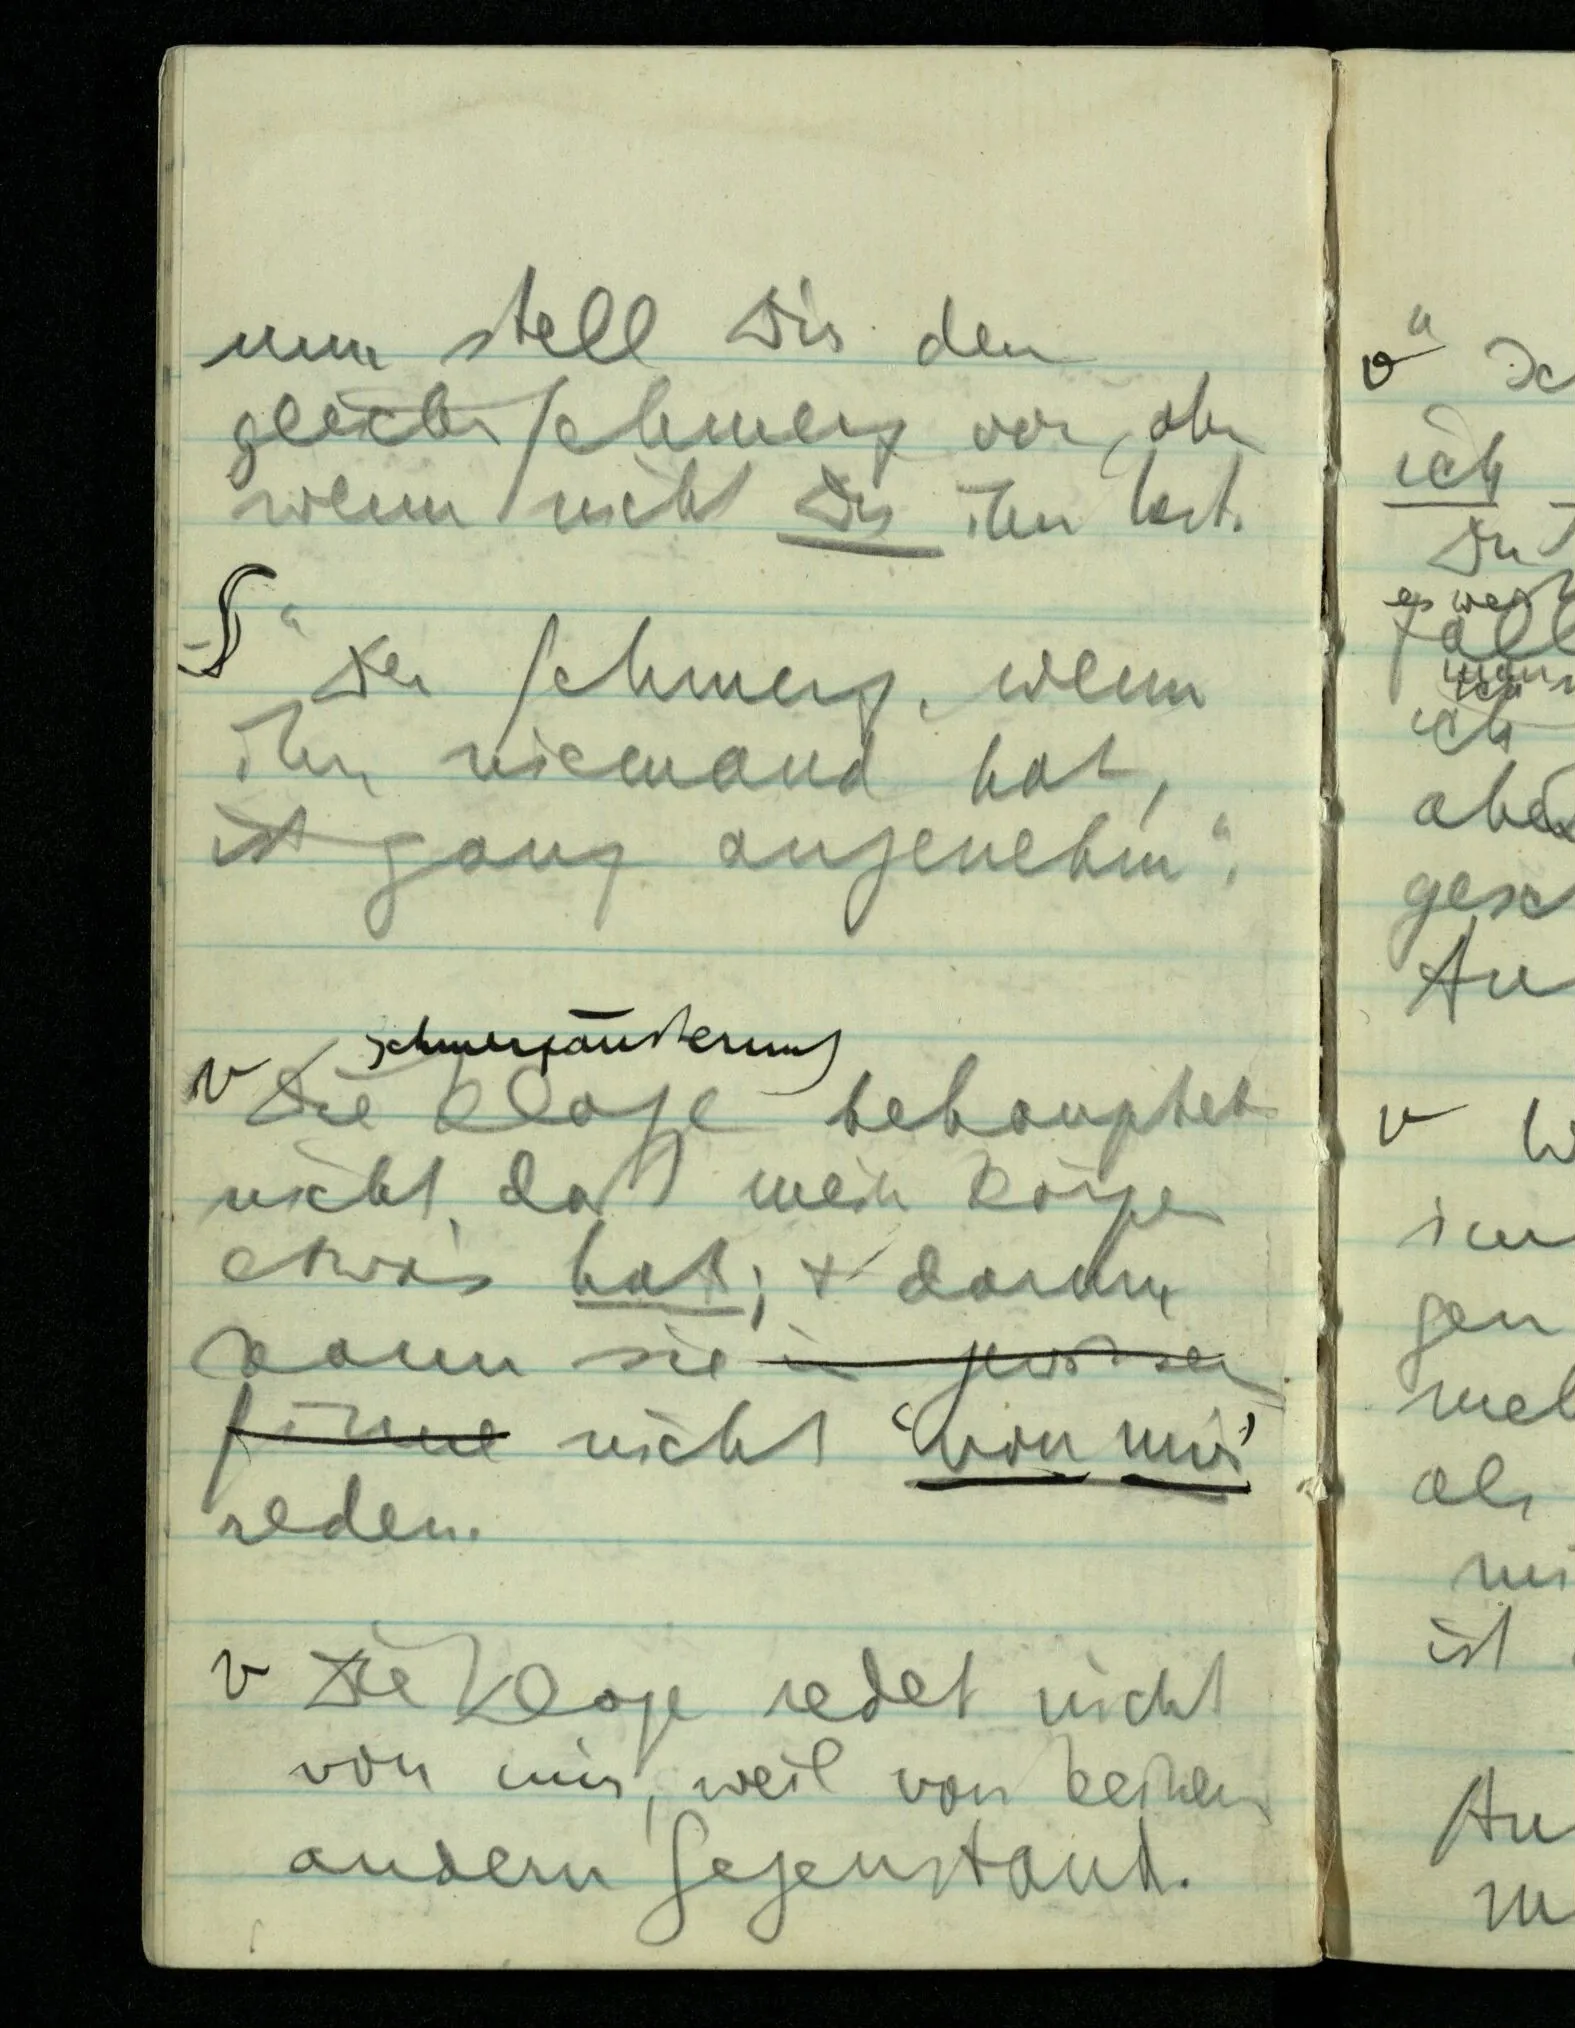 nun stell Dir den
gleichen Schmerz vor, aber
wenn nicht Du ihn hast.
∫ " Der Schmerz, wenn
ihn niemand hat,
ist ganz angenehm".
Schmerzäußerung
v Die Klage behauptet
nicht, daß mein Körper
etwas hat; + darum
kann sie in gewissem
Sinne nicht 'von mir'
reden.
v Die Klage redet nicht
von mir, weil von keinem
andern Gegenstand.
v "
ich
Du
es wer
Fall
ich
aber
gesc
v W
gen
meh
als
ist